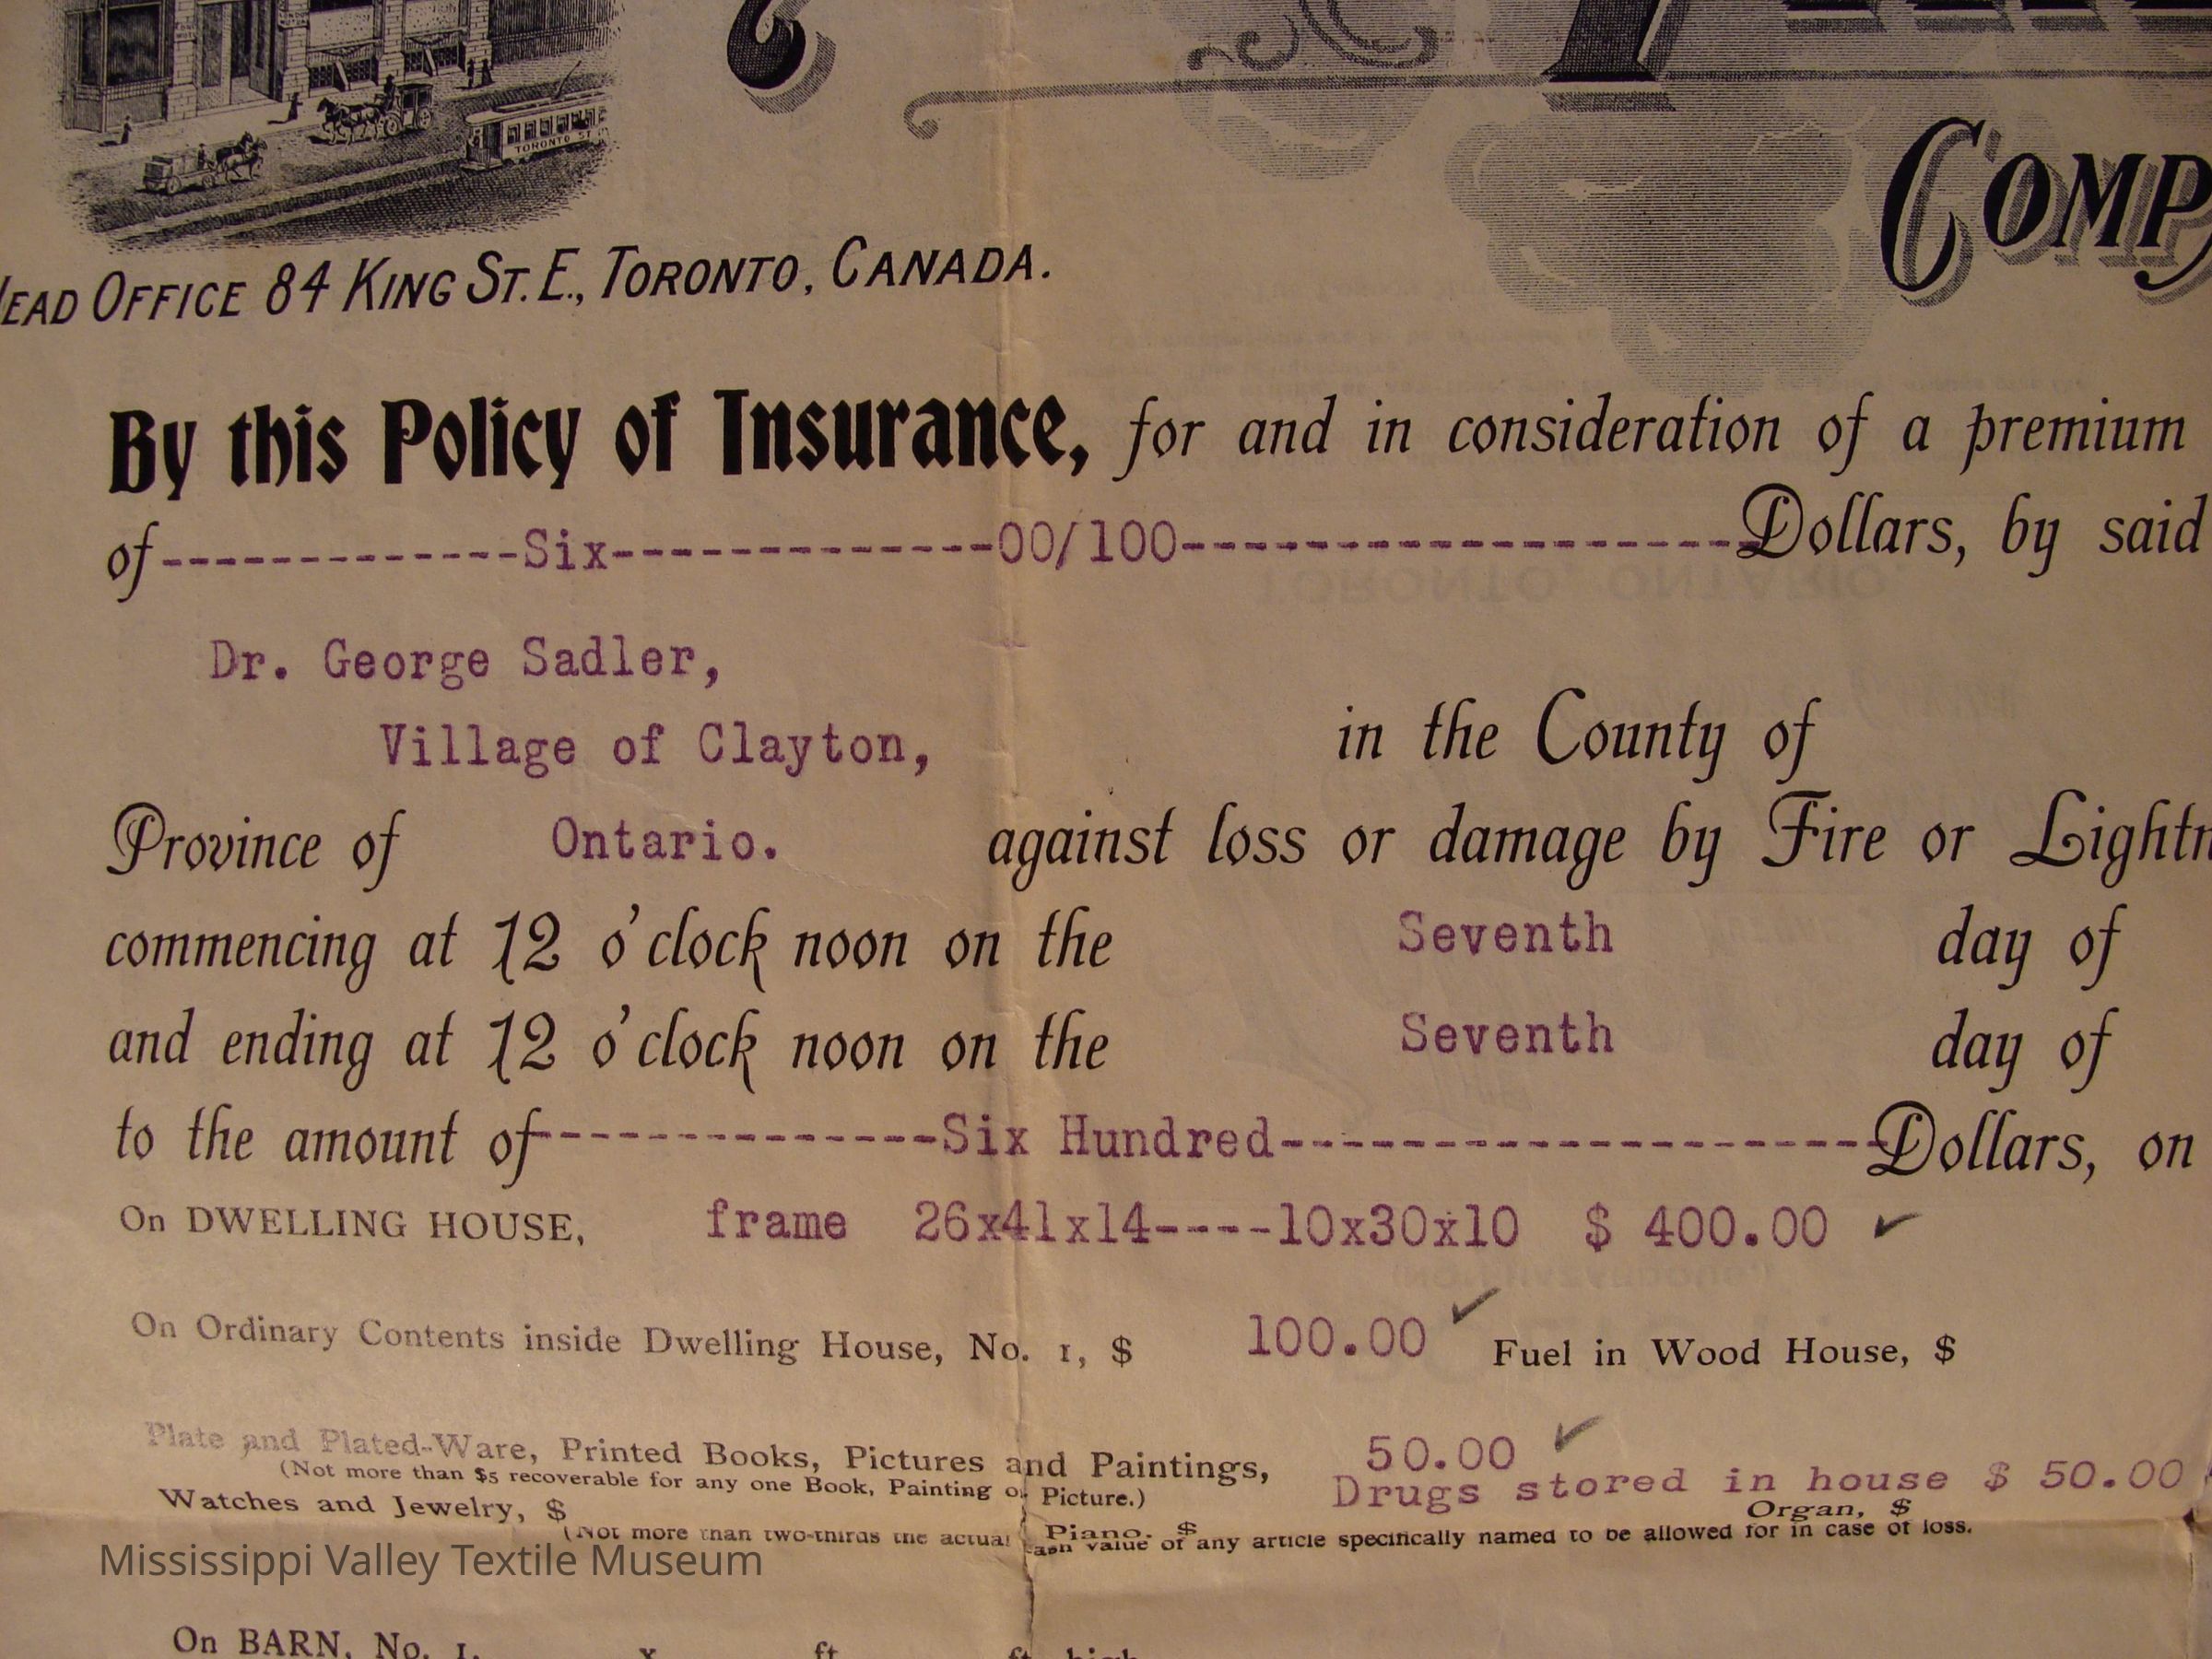 TORONTO ST
COMP
EAD OFFICE 84 KING ST. E., TORONTO, CANADA.
By this Policy of Insurance, for and in consideration of a premium
of-------------Six--------------00/100---------------------Dollars, by said
TORONTO, ONTARIO.
Dr. George Sadler,
Village of Clayton, in the County of
Province of Ontario. against loss or damage by Fire or Lightn
commencing at 12 o'clock noon on the Seventh day of
and ending at 12 o'clock noon on the Seventh day of
to the amount of---------------Six Hundred-----------------------Dollars, on
On DWELLING HOUSE, frame 26x41x14----10x30x10 $ 400.00 ✓
On Ordinary Contents inside Dwelling House, No. 1, $ 100.00 ✓ Fuel in Wood House, $
Plate and Plated-Ware, Printed Books, Pictures and Paintings, 50.00 ✓
(Not more than $5 recoverable for any one Book, Painting or Picture.) Drugs stored in house $ 50.00
Watches and Jewelry, $ Piano, $ Organ, $
(Not more than two-thirds the actual cash value of any article specifically named to be allowed for in case of loss.
Mississippi Valley Textile Museum
On BARN, No. 1, x ft. ft. high